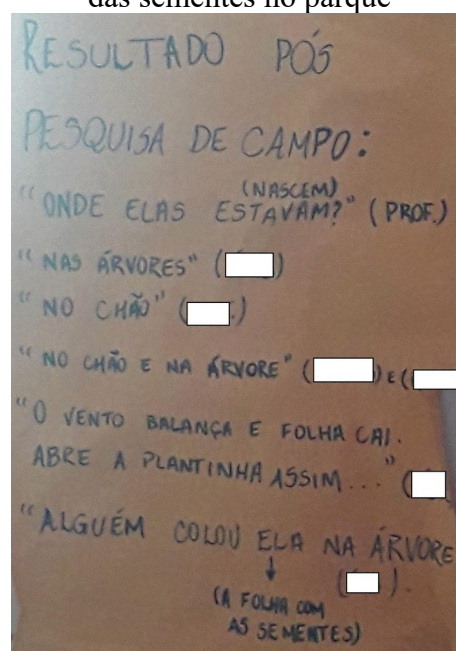 das sementes no parque
RESULTADO PÓS
PESQUISA DE CAMPO:
(NASCEM)
"ONDE ELAS ESTAVAM?" (PROF.)
"NAS ÁRVORES" ( )
"NO CHÃO" ( .)
"NO CHÃO E NA ÁRVORE" ( ) E (
"O VENTO BALANÇA E FOLHA CAI.
ABRE A PLANTINHA ASSIM..." (
"ALGUÉM COLOU ELA NA ÁRVORE
( ).
(A FOLHA COM
AS SEMENTES)